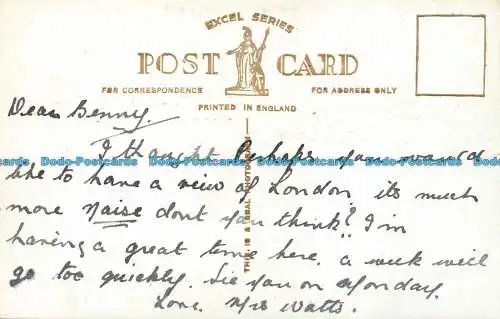 EXCEL SERIES
POST CARD
FOR CORRESPONDENCE
FOR ADDRESS ONLY
PRINTED IN ENGLAND
THIS IS A REAL PHOTOGRAPH
Dear Benny,
I thought Perhaps you would
Dodo-Postcards Dodo-Postcards Dodo-Postcards Dodo-Postcards
like to have a view of London its much
more Naise dont you think? I'm
having a great time here, a week will
go too quickly. See you on Monday.
Love. Mrs Watts.